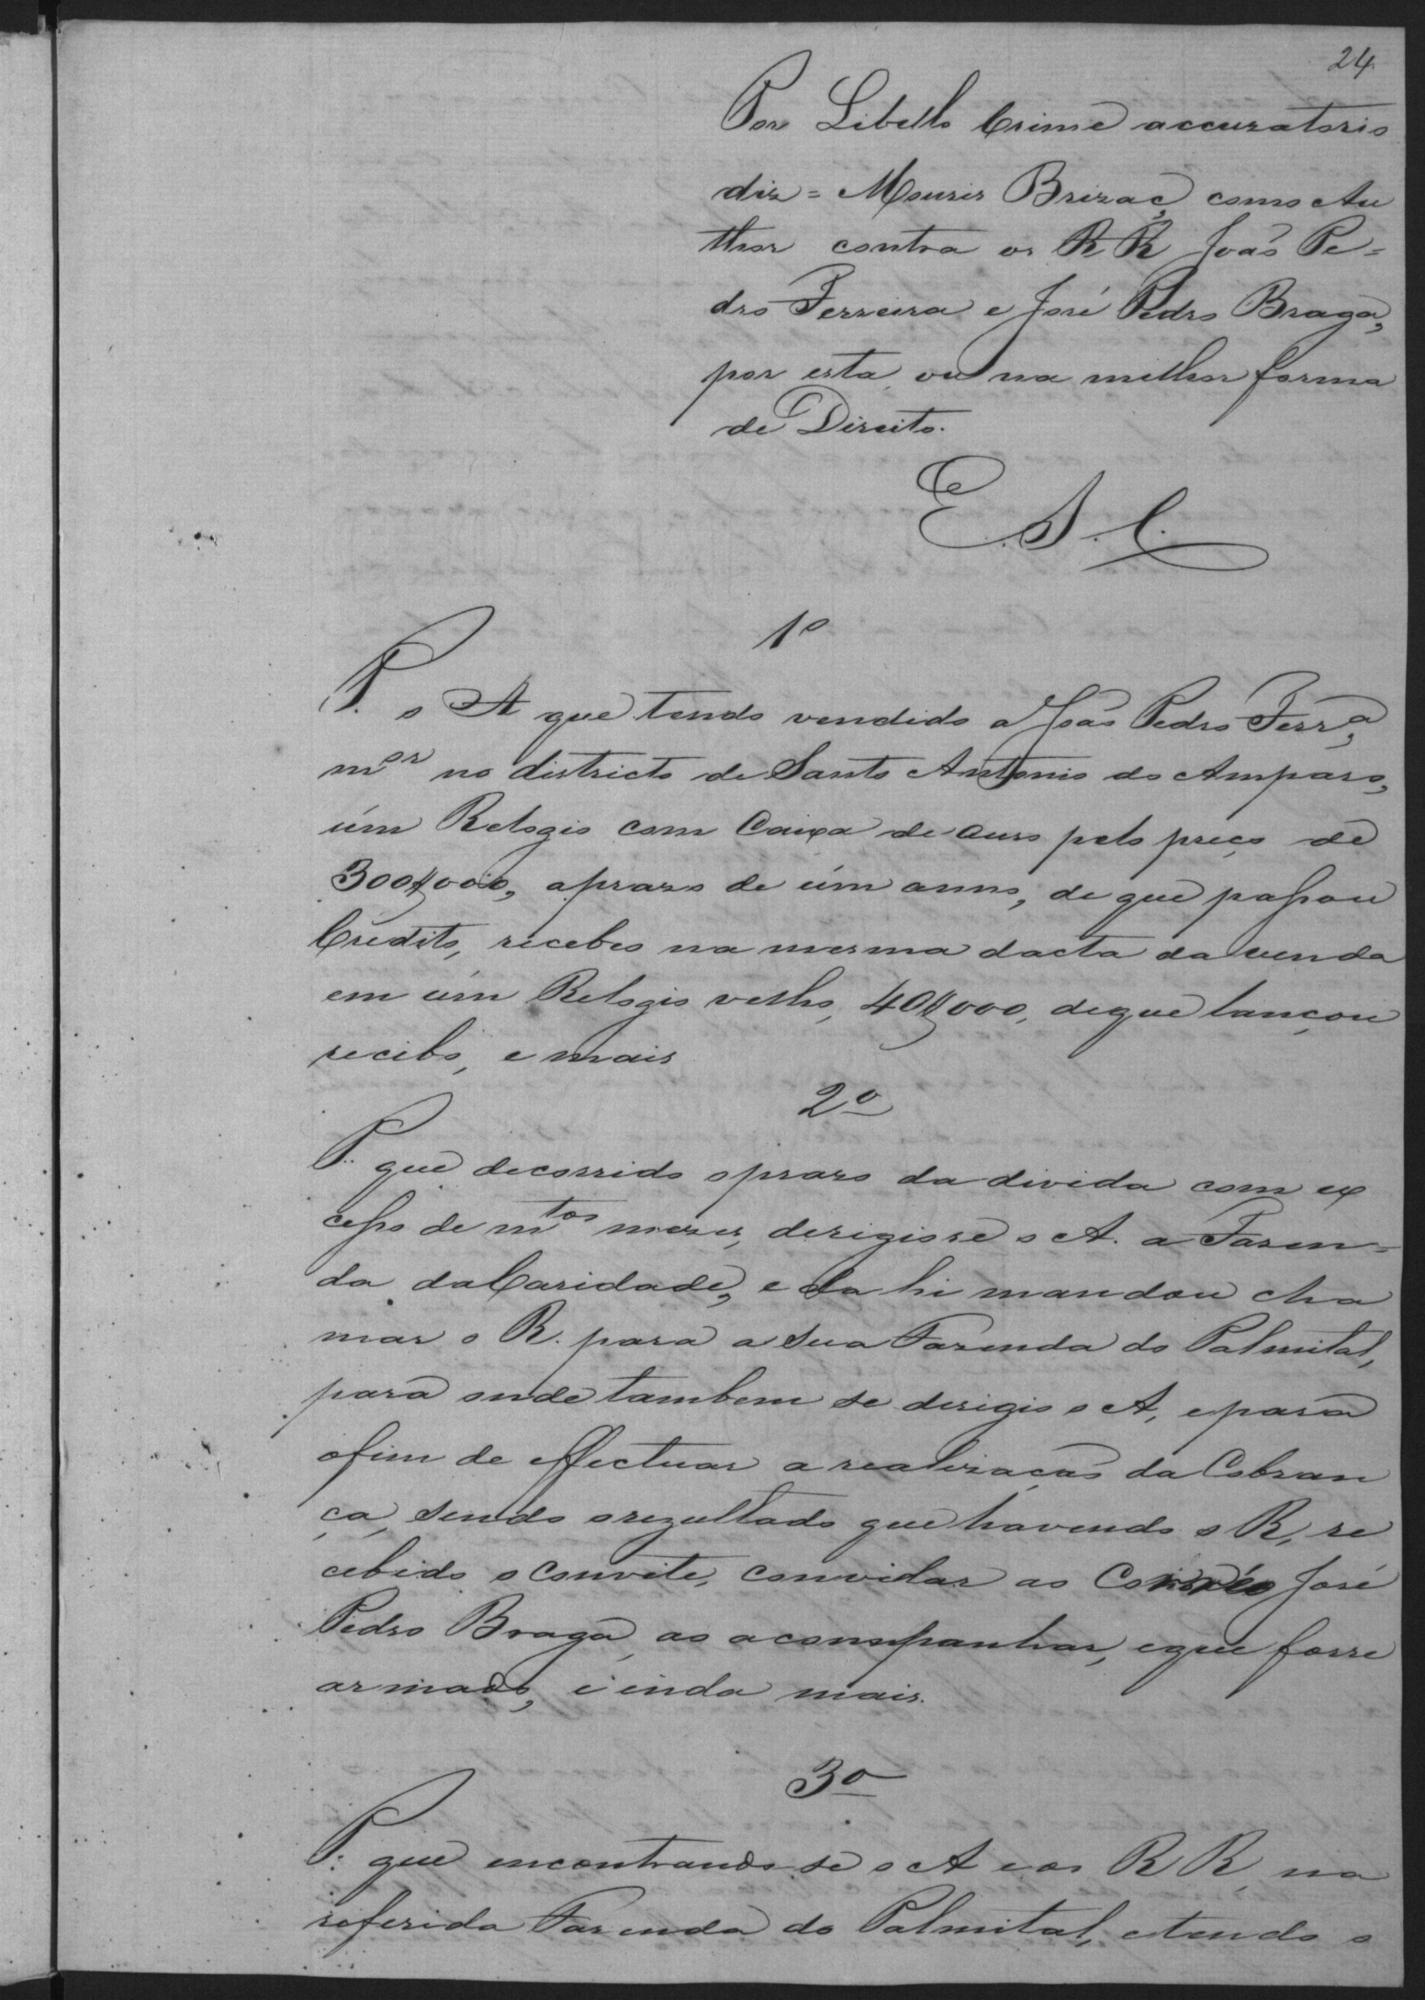 24
Por Libello Crime accusatorio
diz = Mouris Brizac, como Au
thor contra os RR João Pe=
dro Ferreira e José Pedro Braga,
por esta ou na milhor forma
de Direito.
E. S. C.
1º
P. o A que tendo vendido a João Pedro Ferrª,
mºr no districto de Santo Antonio do Amparo,
úm Relogio com Caixa de ouro pelo preço de
300$000, aprazo de úm anno, de que passou
Credito, recebeo na mesma dacta da venda
em úm Relogio velho, 40$000, deque lançou
recibo, e mais
2º
P. que decorrido oprazo da divida com ex
cesso de mtos mezes, derigiose o A. a Fazen=
da da Caridade, e da hi mandou cha
mar o R. para a sua Fazenda do Palmital,
para onde tambem se derigio o A, e para
ofim de effectuar a realização da Cobran
ça, sendo orezultado que havendo o R, re
cebido o convite, convidar ao Corréo José
Pedro Braga, ao acompanhar, eque fosse
armado, e inda mais.
3º
P. que encontrando-se o A e os RR, na
referida Fazenda do Palmital, etendo o